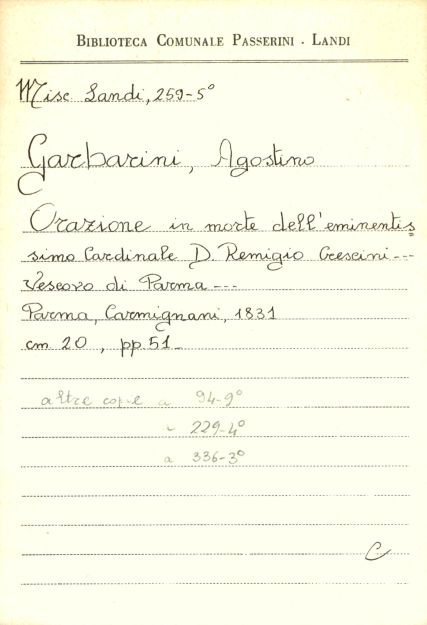 BIBLIOTECA COMUNALE PASSERINI - LANDI
Misc Landi, 259-5°
Garbarini, Agostino
Orazione in morte dell'eminentis
simo Cardinale D. Remigio Crescini ---
Vescovo di Parma ---
Parma, Carmignani, 1831
cm 20, pp. 51_
altre copie a 94-9°
229-4°
a 336-3°
C